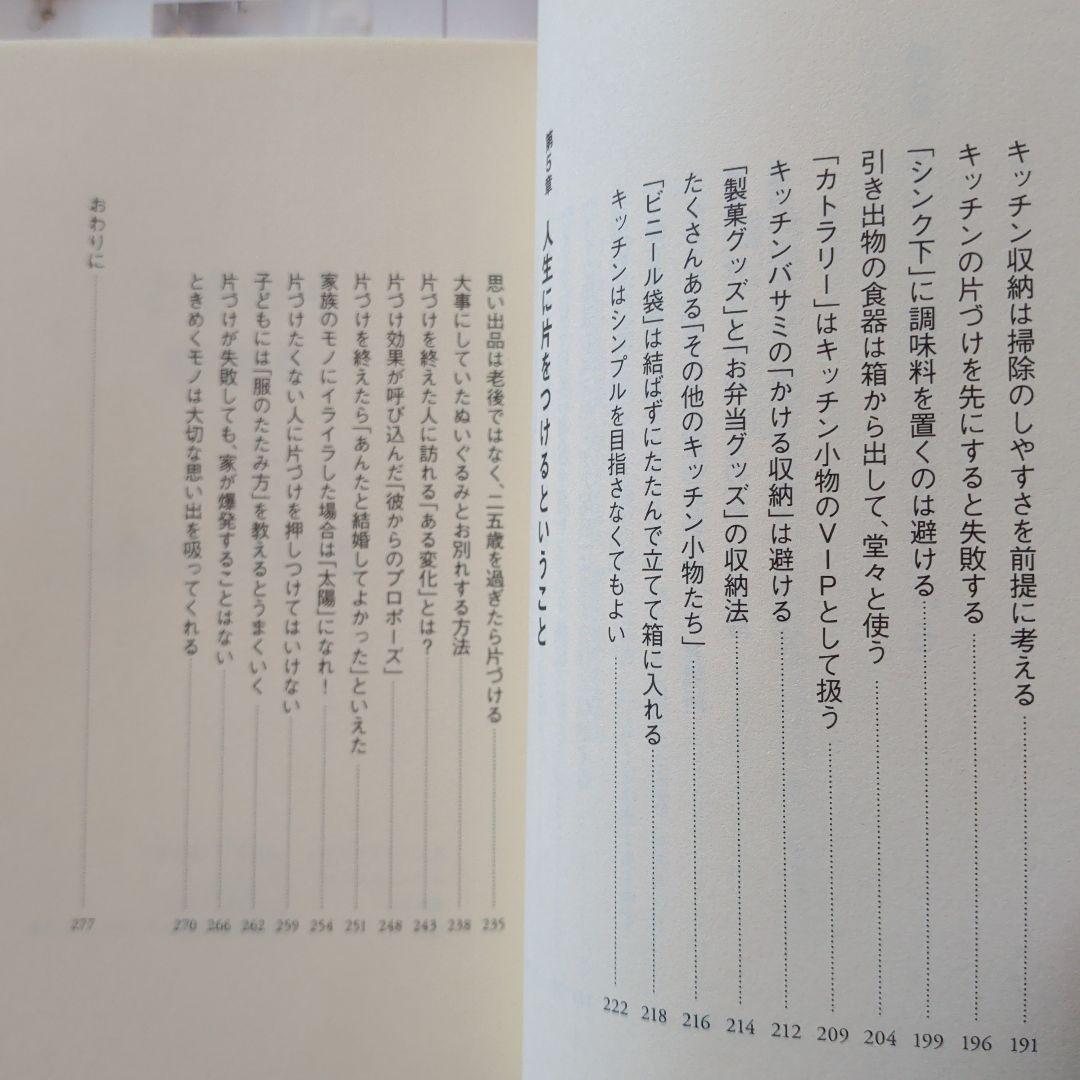 キッチン収納は掃除のしやすさを前提に考える 191
キッチンの片づけを先にすると失敗する 196
「シンク下」に調味料を置くのは避ける 199
引き出物の食器は箱から出して、堂々と使う 204
「カトラリー」はキッチン小物のVIPとして扱う 209
キッチンバサミの「かける収納」は避ける 212
「製菓グッズ」と「お弁当グッズ」の収納法 214
たくさんある「その他のキッチン小物たち」 216
「ビニール袋」は結ばずにたたんで立てて箱に入れる 218
キッチンはシンプルを目指さなくてもよい 222
第5章 人生に片をつけるということ
思い出品は老後ではなく、二五歳を過ぎたら片づける 235
大事にしていたぬいぐるみとお別れする方法 238
片づけを終えた人に訪れる「ある変化」とは? 243
片づけ効果が呼び込んだ「彼からのプロポーズ」 248
片づけを終えたら「あんたと結婚してよかった」といえた 251
家族のモノにイライラした場合は「太陽」になれ! 254
片づけたくない人に片づけを押しつけてはいけない 259
子どもには「服のたたみ方」を教えるとうまくいく 262
片づけが失敗しても、家が爆発することはない 266
ときめくモノは大切な思い出を吸ってくれる 270
おわりに 277